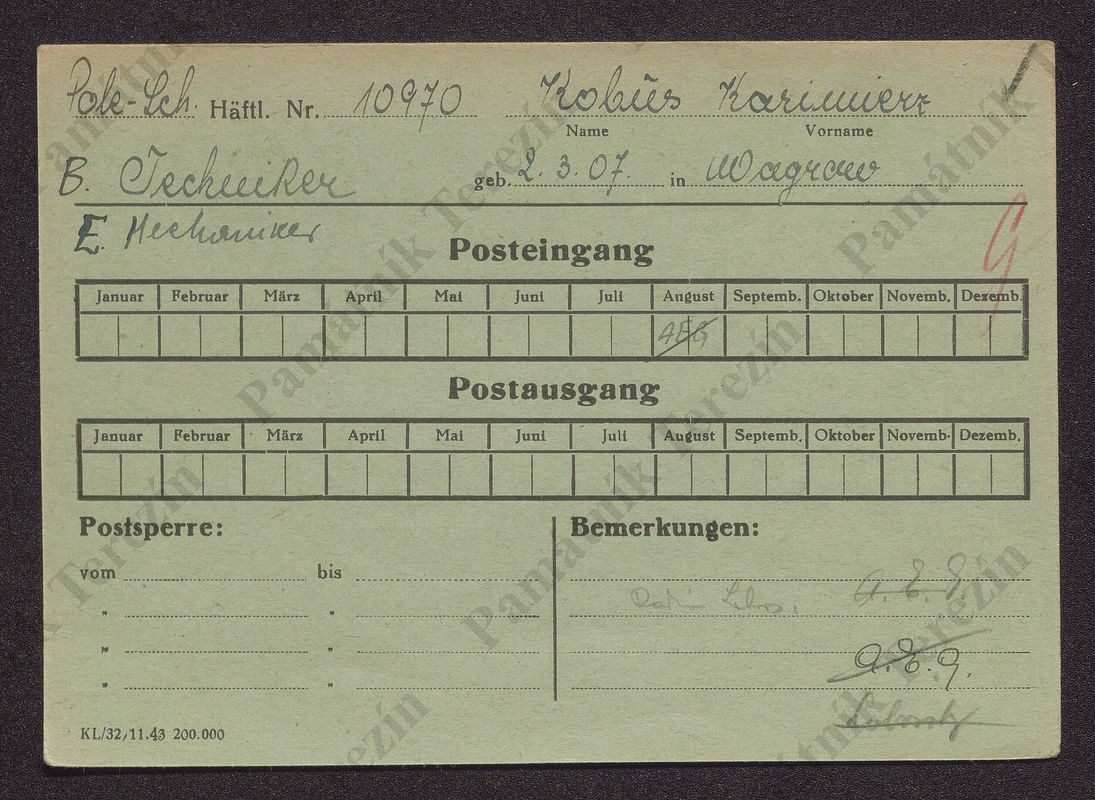 Pole-Sch. Häftl. Nr. 10970 Kobus Kazimierz
Name Vorname
B. Techniker geb. 2. 3. 07. in Wagrow
E. Mechaniker
Posteingang
Januar Februar März April Mai Juni Juli August Septemb. Oktober Novemb. Dezemb.
AEG
Postausgang
Januar Februar März April Mai Juni Juli August Septemb. Oktober Novemb. Dezemb.
Postsperre: Bemerkungen:
vom bis
" " A. E. G.
" "
" " A. E. G.
KL/32/11.43 200.000
Památník Terezín